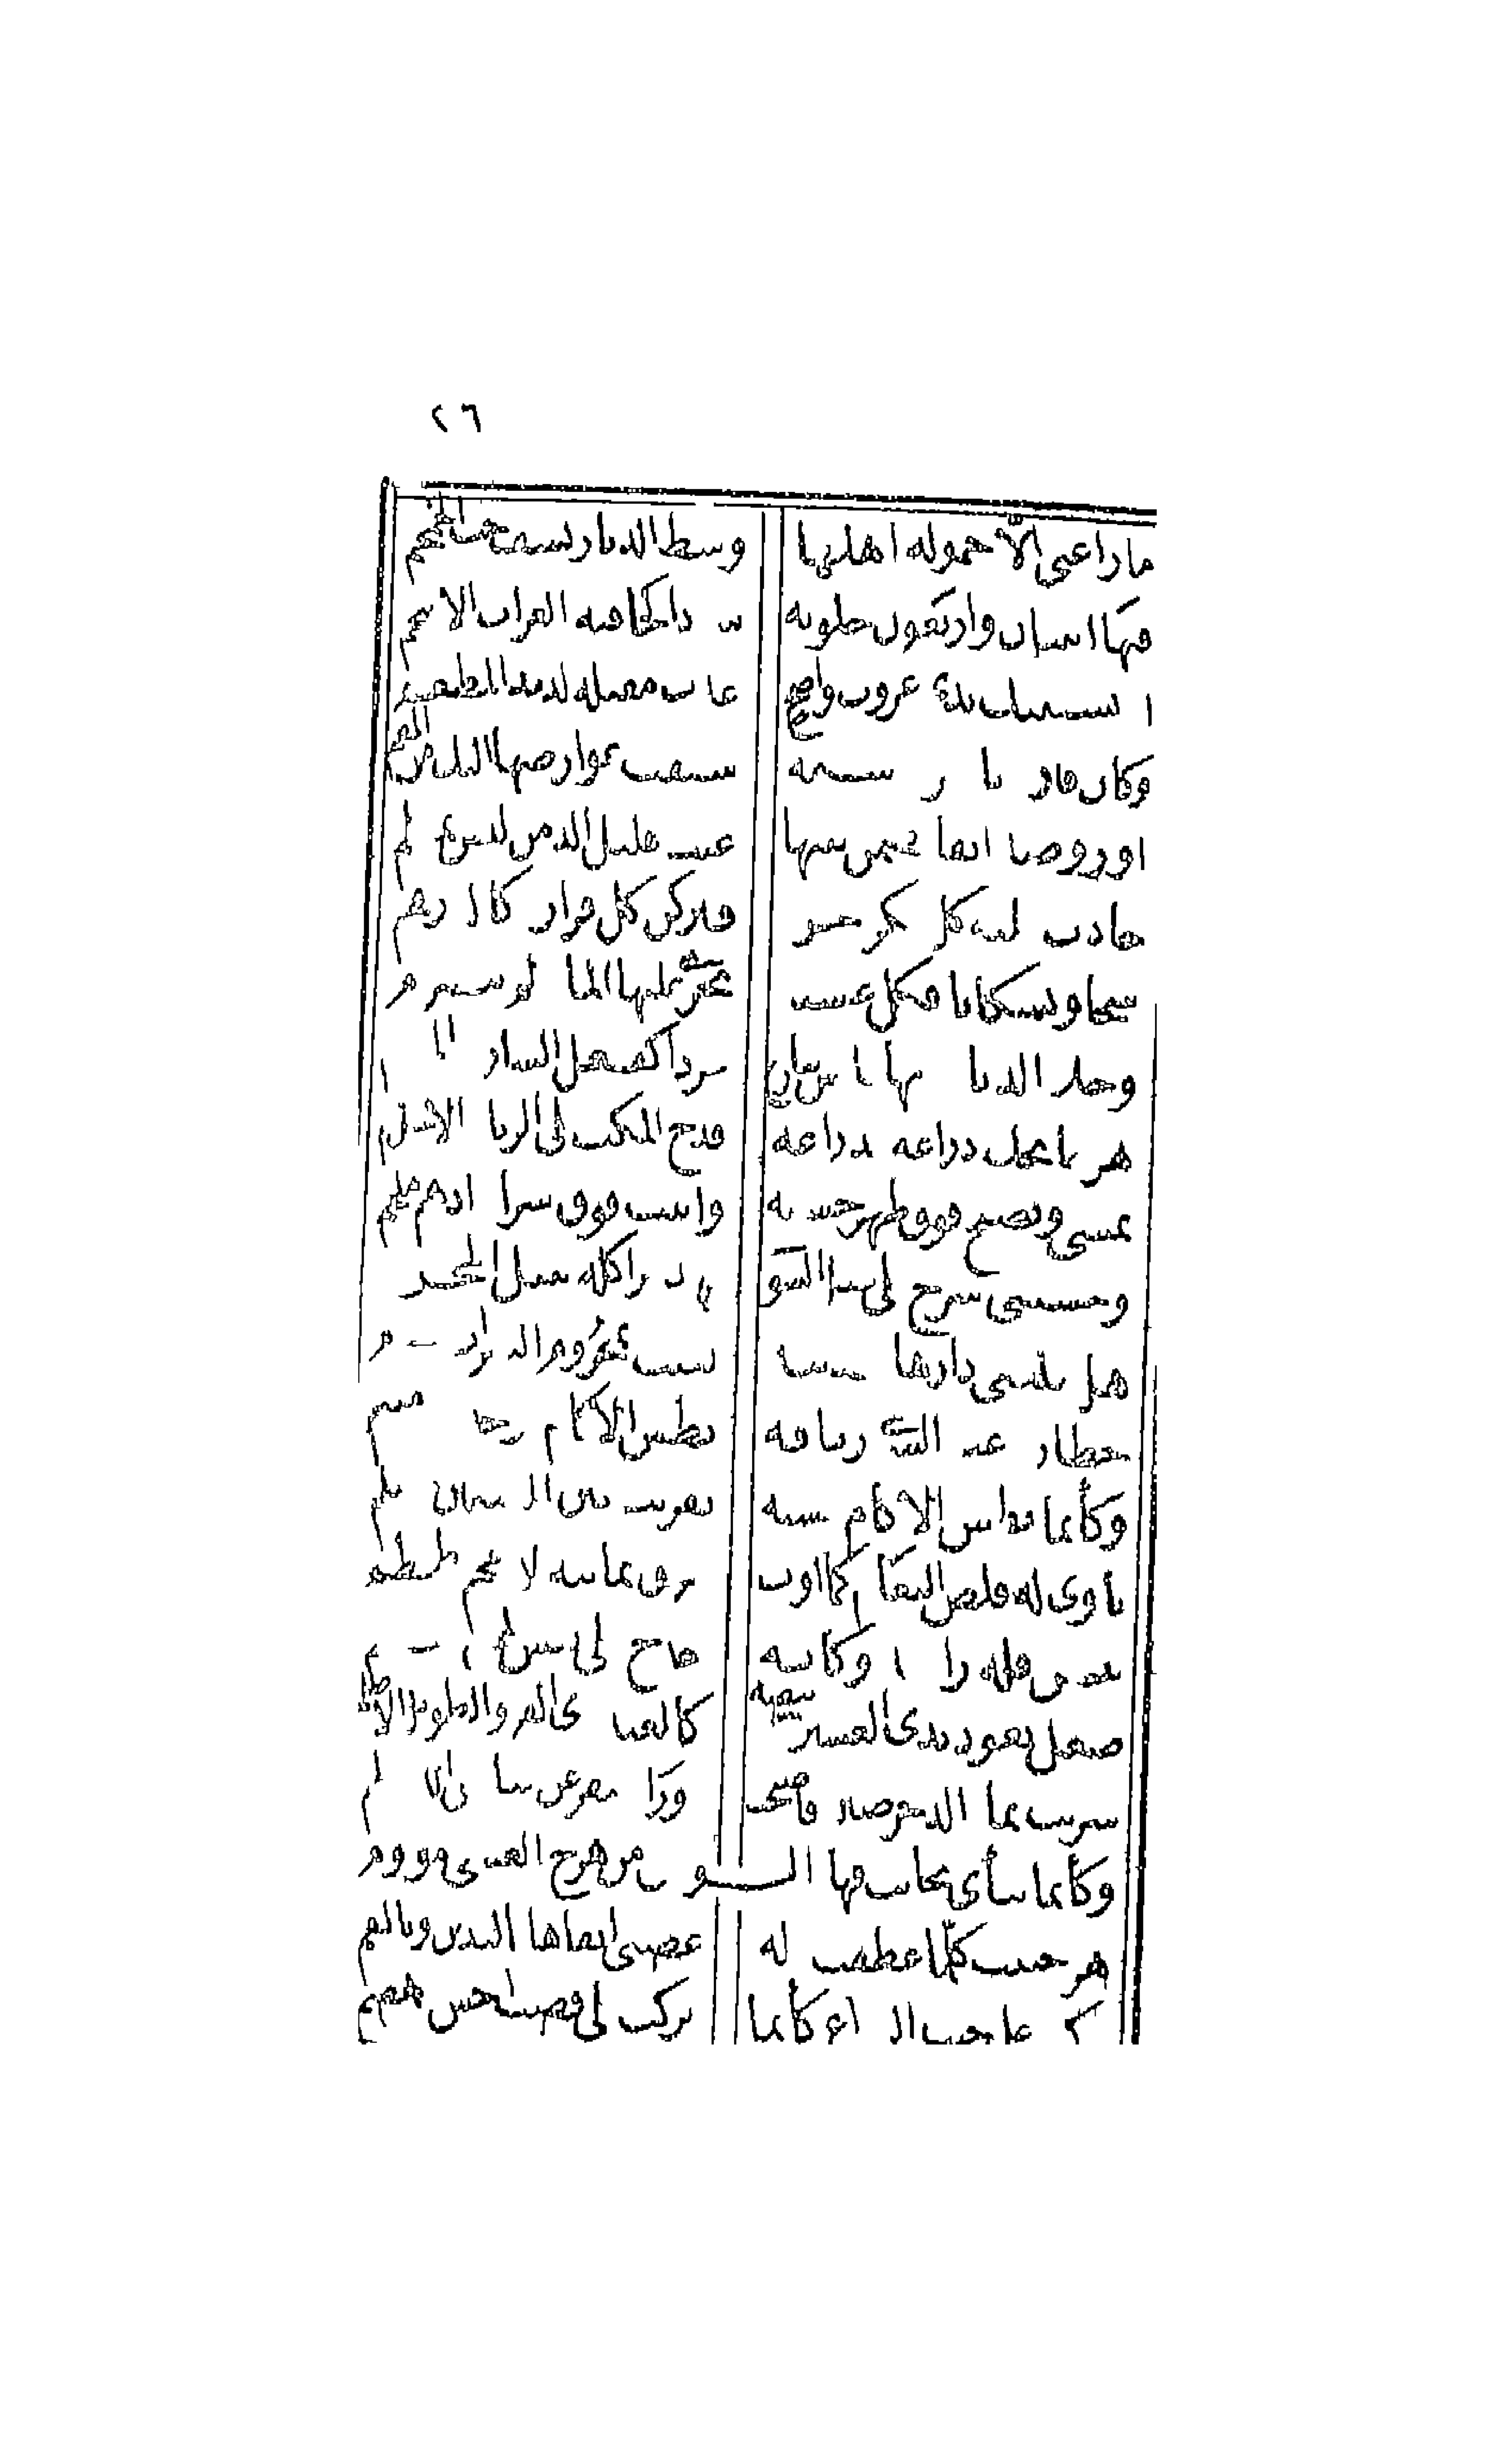 ٢٦
ما راعني الّا حمولة اهلها وسط الديار تسف حب الخمخم
فيها اثنتان واربعون حلوبة سودا كخافية الغراب الاسحم
اذ تستبيك بذي غروب واضح عذب مقبله لذيذ المطعم
وكان فارة تاجر بقسيمة سبقت عوارضها اليك من الفم
او روضة انفا تضمن نبتها غيث قليل الدمن ليس بمعلم
جادت عليه كل بكر حرة فتركن كل قرارة كالدرهم
سحا وتسكابا فكل عشية يجري عليها الماء لم يتصرم
وخلا الذباب بها فليس ببارح غردا كفعل الشارب المترنم
هزجا يحك ذراعه بذراعه قدح المكب على الزناد الاجذم
تمسي وتصبح فوق ظهر حشية وابيت فوق سراة ادهم ملجم
وحشيتي سرج على عبل الشوى نهد مراكله نبيل المحزم
هل تبلغني دارها شدنية لعنت بمحروم الشراب مصرم
خطارة غب السرى زيافة تطس الاكام
وكأنما تطس الاكام عشية بقريب بين المنسمين مصلم
تأوي له قلص النعام كما اوت حزق يمانية لاعجم طمطم
يتبعن قلة رأسه وكأنه حدج على نعش لهن مخيم
صعل يعود بذي العشيرة بيضه كالعبد ذي الفرو الطويل الاصلم
شربت بماء الدحرضين فأصبحت زوراء تنفر عن حياض الديلم
وكأنما تنأى بجانب دفها الوحشي من هزج العشي مؤوم
هر جنيب كلما عطفت له غضبى اتقاها باليدين وبالفم
بركت على جنب الرداع كأنما بركت على قصب اجش مهضم